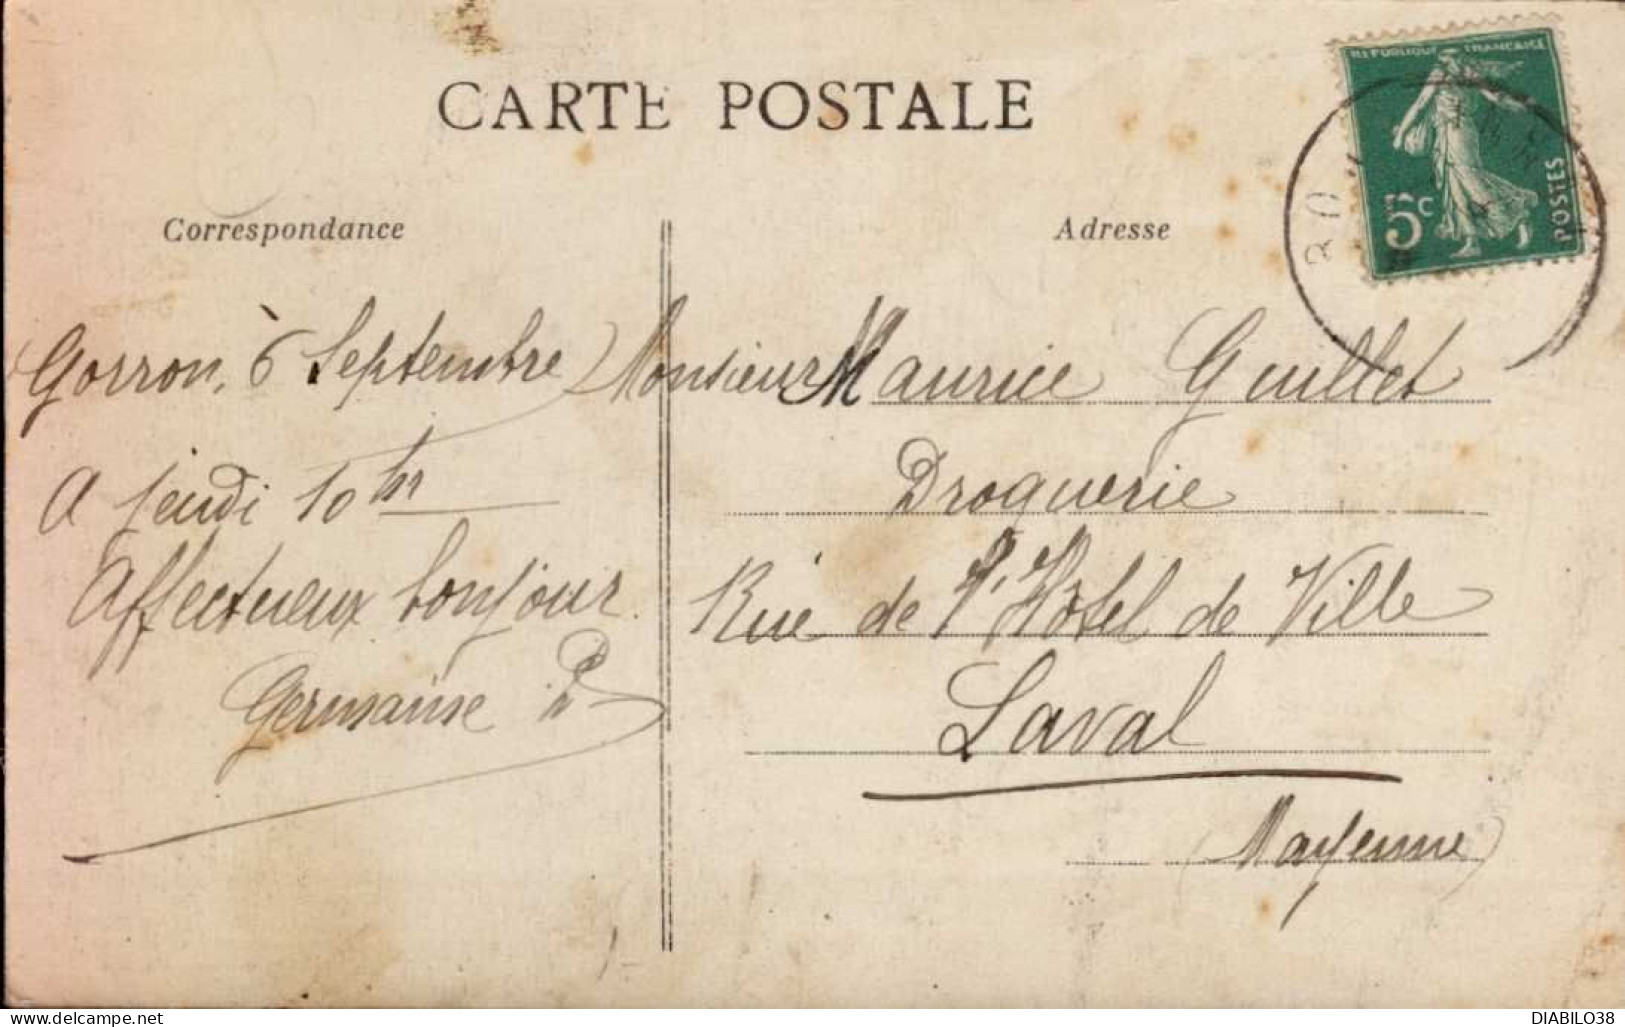 CARTE POSTALE
Correspondance
Gorron, 6 Septembre
A jeudi 10 hr
Affectueux bonjour
Germaine
Adresse
Monsieur Maurice Guillet
Droguerie
Rue de l'Hôtel de Ville
Laval
(Mayenne)
REPUBLIQUE FRANCAISE
5c
POSTES
www.delcampe.net
DIABILO38